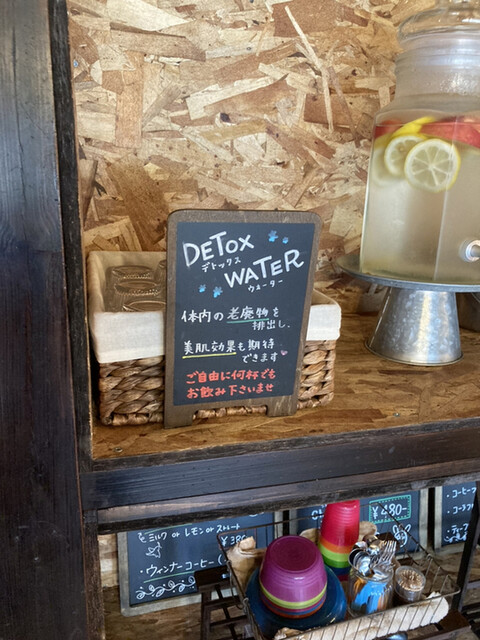 DETOX
デトックス
WATER
ウォーター
体内の老廃物を
排出し、
美肌効果も期待
できます
ご自由に何杯でも
お飲み下さいませ
ミルク or レモン or ストレート
¥380-
・ウィンナーコーヒー
¥480-
・コーヒー